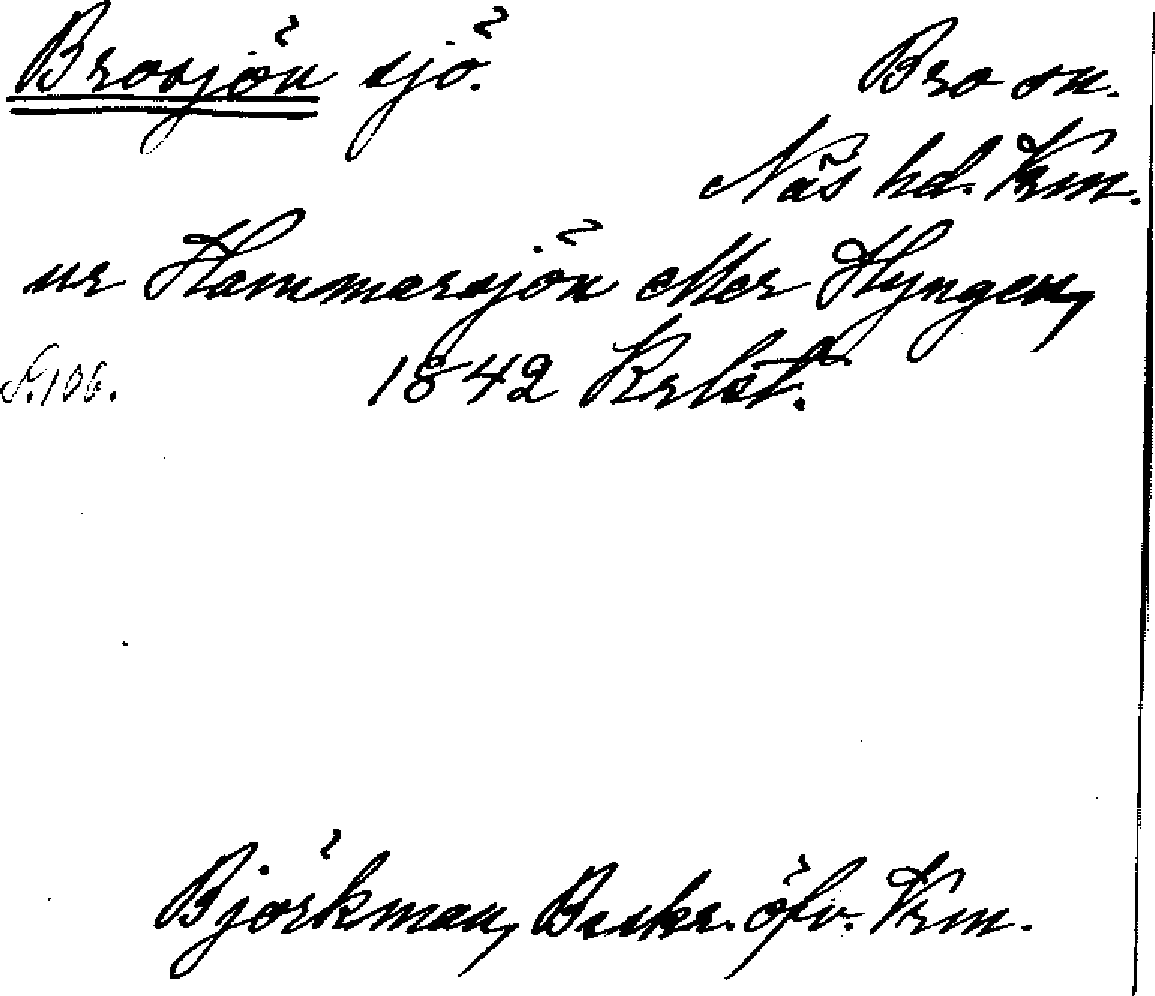 Brosjön sjö. Bro sn.
Näs hd. Vrm.
ur Hammarsjön eller Hyngen,
S. 106. 1842 Krlst.
Björkman, Beskr. öfv. Vrm.